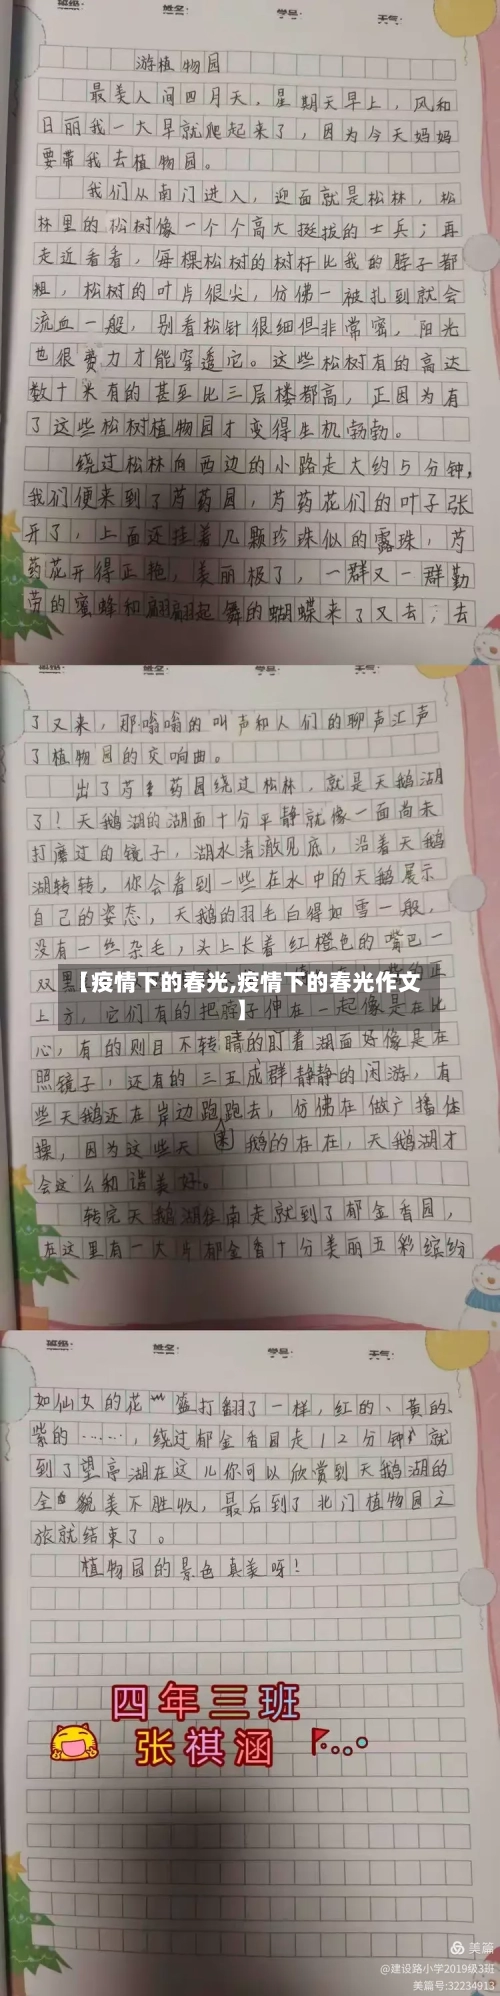 班级: 姓名: 学号: 天气:
游植物园
最美人间四月天，星期天早上，风和
日丽我一大早就爬起来了，因为今天妈妈
要带我去植物园。
我们从南门进入，迎面就是松林，松
林里的松树像一个个高大挺拔的士兵；再
走近看看，每棵松树的树杆比我的脖子都
粗，松树的叶片很尖，仿佛一被扎到就会
流血一般，别看松针很细但非常密，阳光
也很费力才能穿透它。这些松树有的高达
数十米有的甚至比三层楼都高，正因为有
了这些松树植物园才变得生机勃勃。
绕过松林向西边的小路走大约5分钟，
我们便来到了芍药园，芍药花们的叶子张
开了，上面还挂着几颗珍珠似的露珠，芍
药花开得正艳，美丽极了，一群又一群勤
劳的蜜蜂和翩翩起舞的蝴蝶来了又去；去
班级: 姓名: 学号: 天气:
了又来，那嗡嗡的叫声和人们的聊声汇声
了植物园的交响曲。
出了芍药园绕过松林，就是天鹅湖
了！天鹅湖的湖面十分平静就像一面尚未
打磨过的镜子，湖水清澈见底，沿着天鹅
湖转转，你会看到一些在水中的天鹅展示
自己的姿态，天鹅的羽毛白得如雪一般，
没有一丝杂毛，头上长着红橙色的嘴巴一
双黑
【疫情下的春光,疫情下的春光作文
】
上方，它们有的把脖子伸在一起像是在比
心，有的则目不转睛的盯着湖面好像是在
照镜子，还有的三五成群静静的闲游，有
些天鹅还在岸边跑跑去，仿佛在做广播体
操，因为这些天鹅的存在，天鹅湖才
会这么和谐美好。
转完天鹅湖往南走就到了郁金香园，
在这里有一大片郁金香十分美丽五彩缤纷
班级: 姓名: 学号: 天气:
如仙女的花篮打翻了一样，红的、黄的、
紫的……，绕过郁金香园走12分钟就
到了望亭湖在这儿你可以欣赏到天鹅湖的
全貌美不胜收，最后到了北门植物园之
旅就结束了。
植物园的景色真美呀！
四年三班
张祺涵
美篇
@建设路小学2019级3班
美篇号:32234913